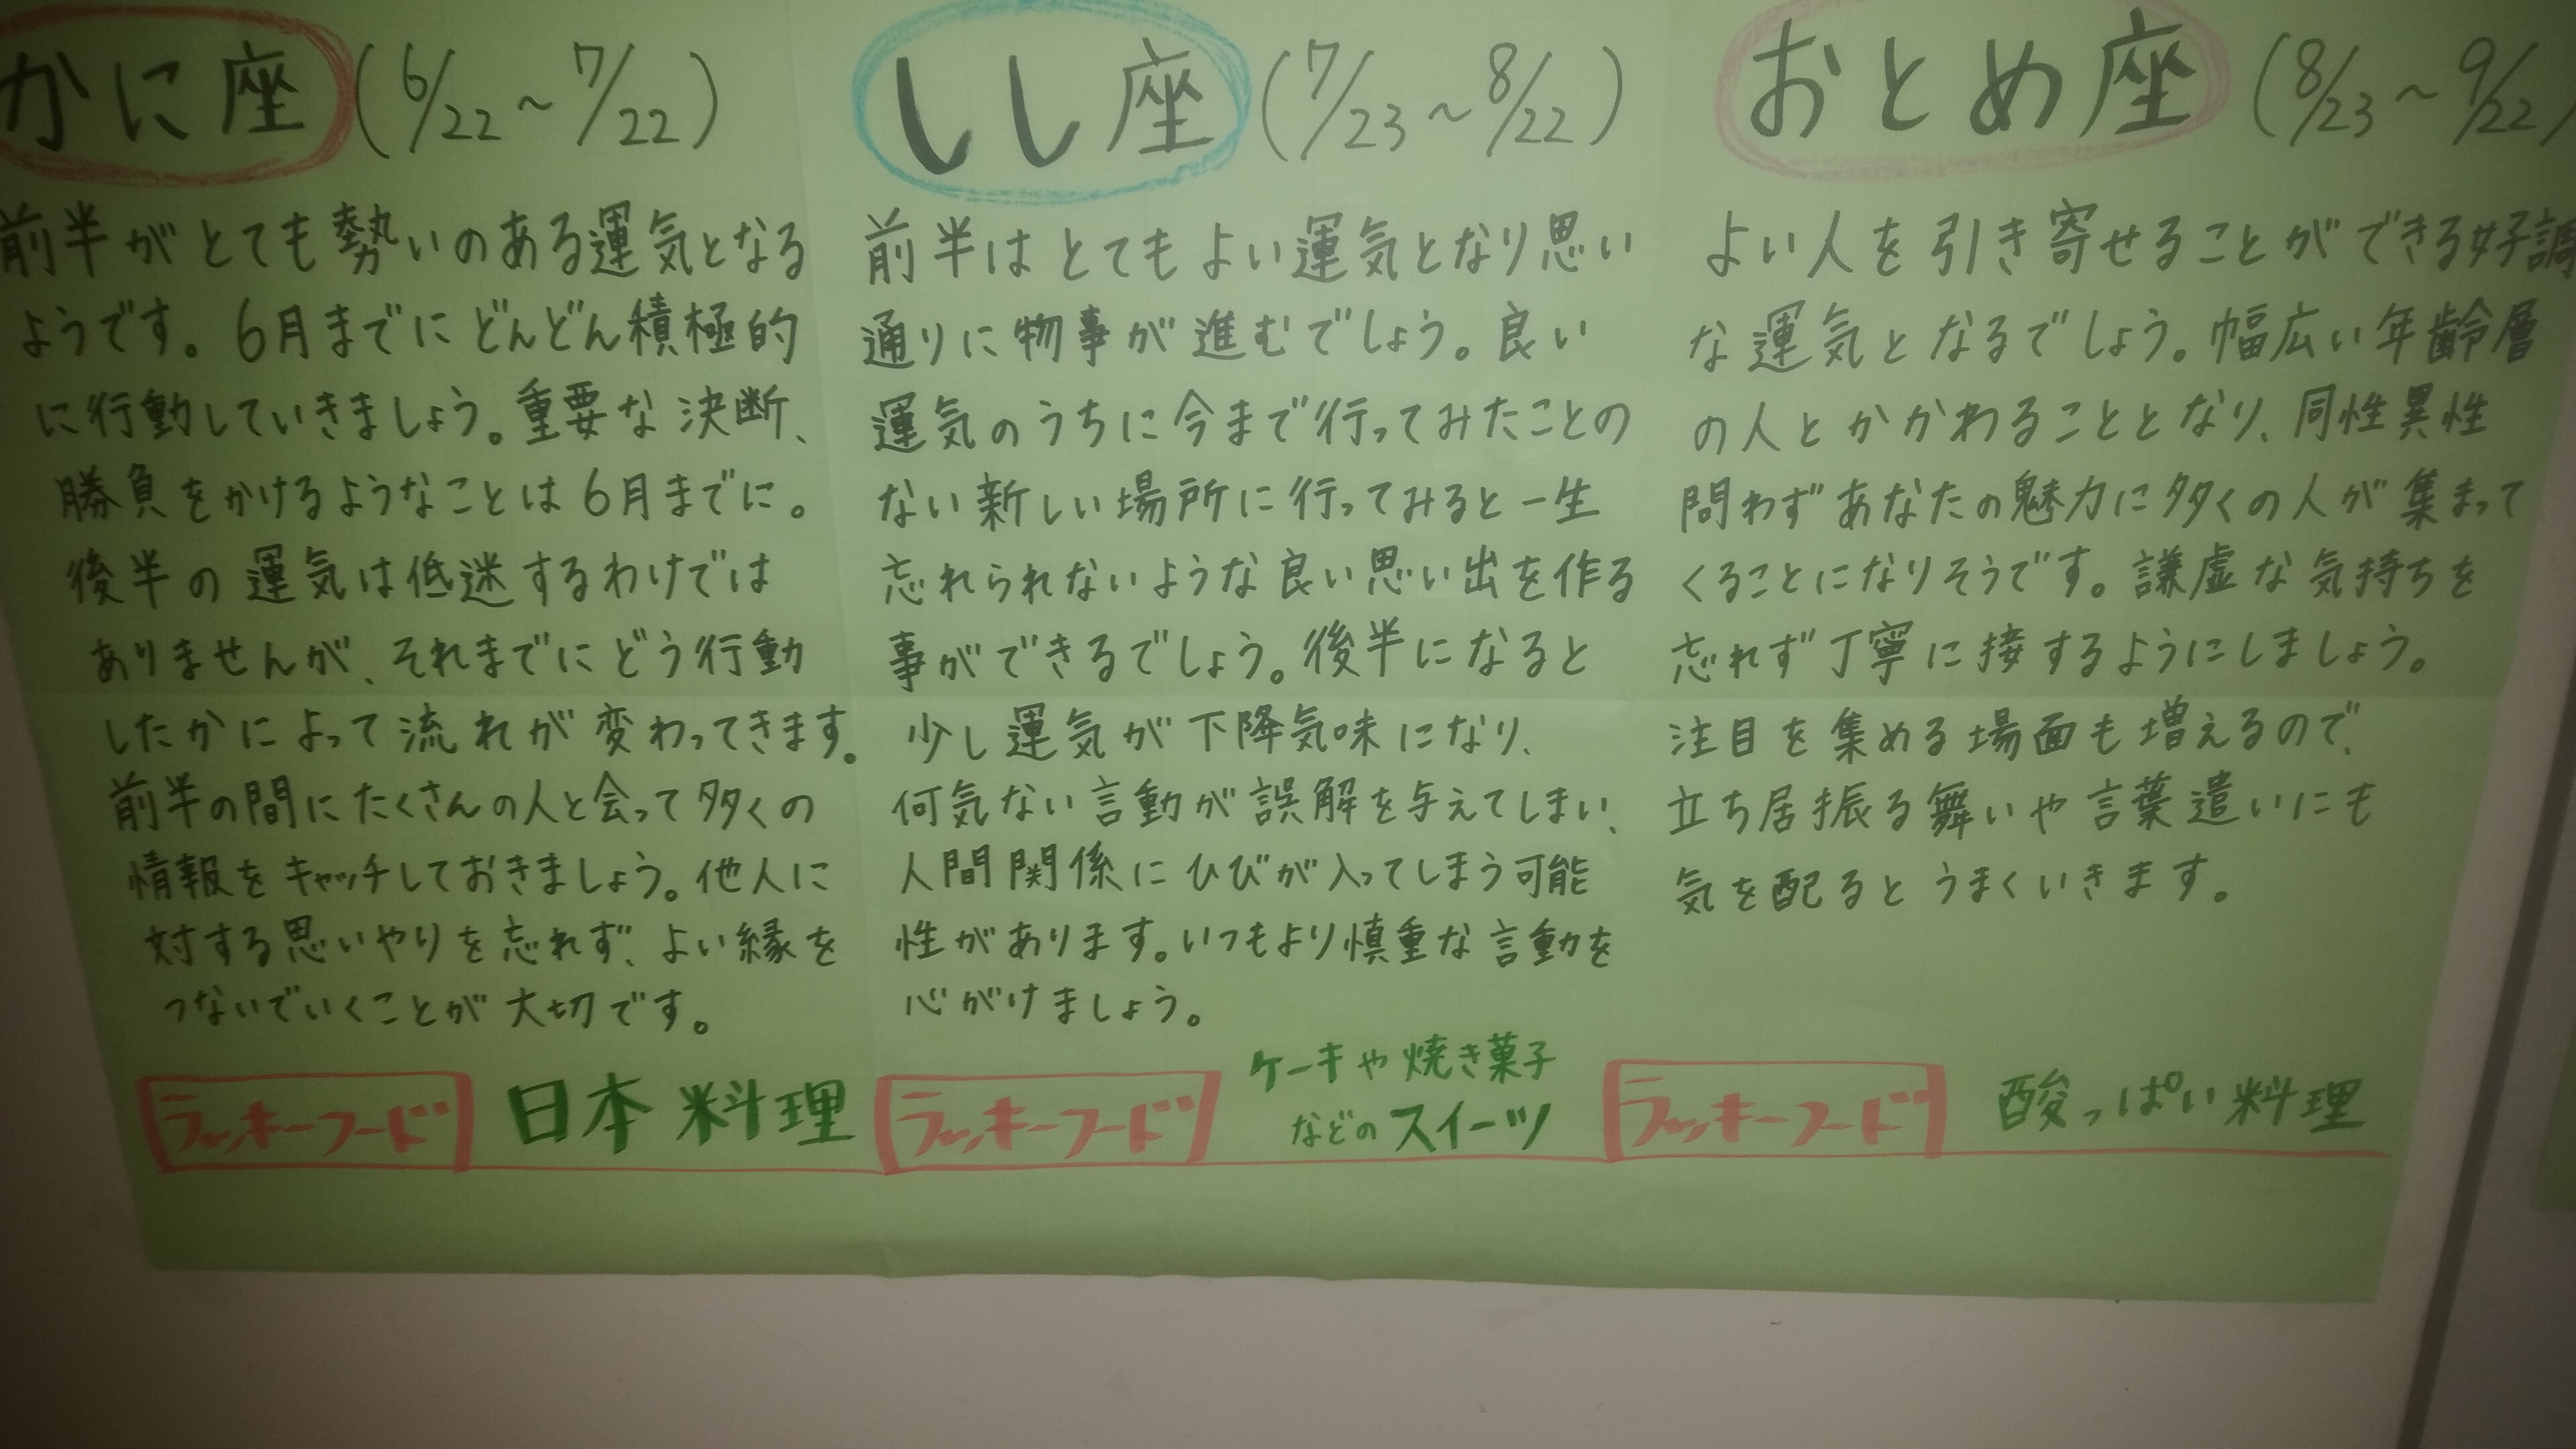 かに座 (6/22～7/22)
前半がとても勢いのある運気となる
ようです。6月までにどんどん積極的
に行動していきましょう。重要な決断、
勝負をかけるようなことは6月までに。
後半の運気は低迷するわけでは
ありませんが、それまでにどう行動
したかによって流れが変わってきます。
前半の間にたくさんの人と会って多くの
情報をキャッチしておきましょう。他人に
対する思いやりを忘れず、よい縁を
つないでいくことが大切です。
ラッキーフード 日本料理
しし座 (7/23～8/22)
前半はとてもよい運気となり思い
通りに物事が進むでしょう。良い
運気のうちに今まで行ってみたことの
ない新しい場所に行ってみると一生
忘れられないような良い思い出を作る
事ができるでしょう。後半になると
少し運気が下降気味になり、
何気ない言動が誤解を与えてしまい、
人間関係にひびが入ってしまう可能
性があります。いつもより慎重な言動を
心がけましょう。
ラッキーフード
ケーキや焼き菓子
などのスイーツ
おとめ座 (8/23～9/22)
よい人を引き寄せることができる好調
な運気となるでしょう。幅広い年齢層
の人とかかわることとなり、同性異性
問わずあなたの魅力に多くの人が集まって
くることになりそうです。謙虚な気持ちを
忘れず丁寧に接するようにしましょう。
注目を集める場面も増えるので、
立ち居振る舞いや言葉遣いにも
気を配るとうまくいきます。
ラッキーフード 酸っぱい料理